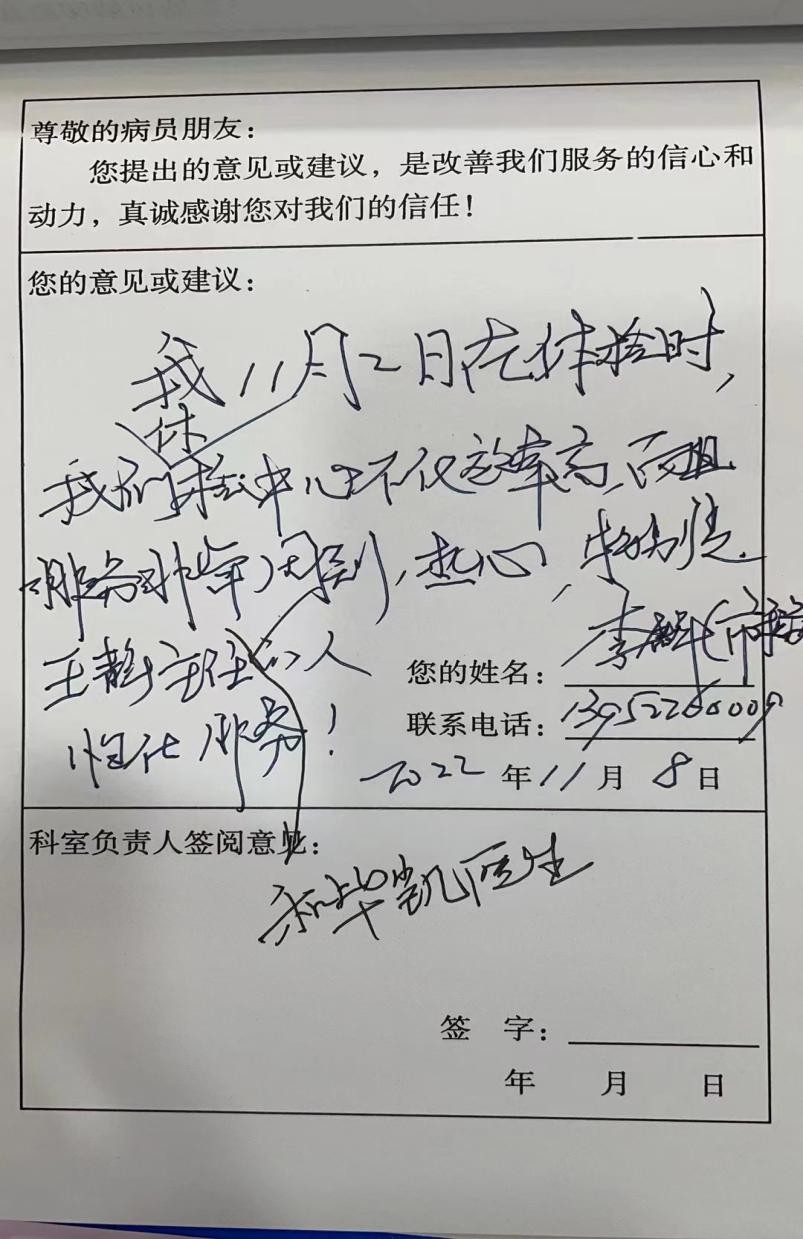 尊敬的病员朋友：
您提出的意见或建议，是改善我们服务的信心和
动力，真诚感谢您对我们的信任！
您的意见或建议：
我11月2日在体检时，
体
我们检中心不仅效率高，而且
服务非常周到，热心，特别是
王静主任的人
性化服务！
您的姓名：李
联系电话：13952260009
2022年11月8日
科室负责人签阅意见：
和华凯医生
签 字：
年 月 日